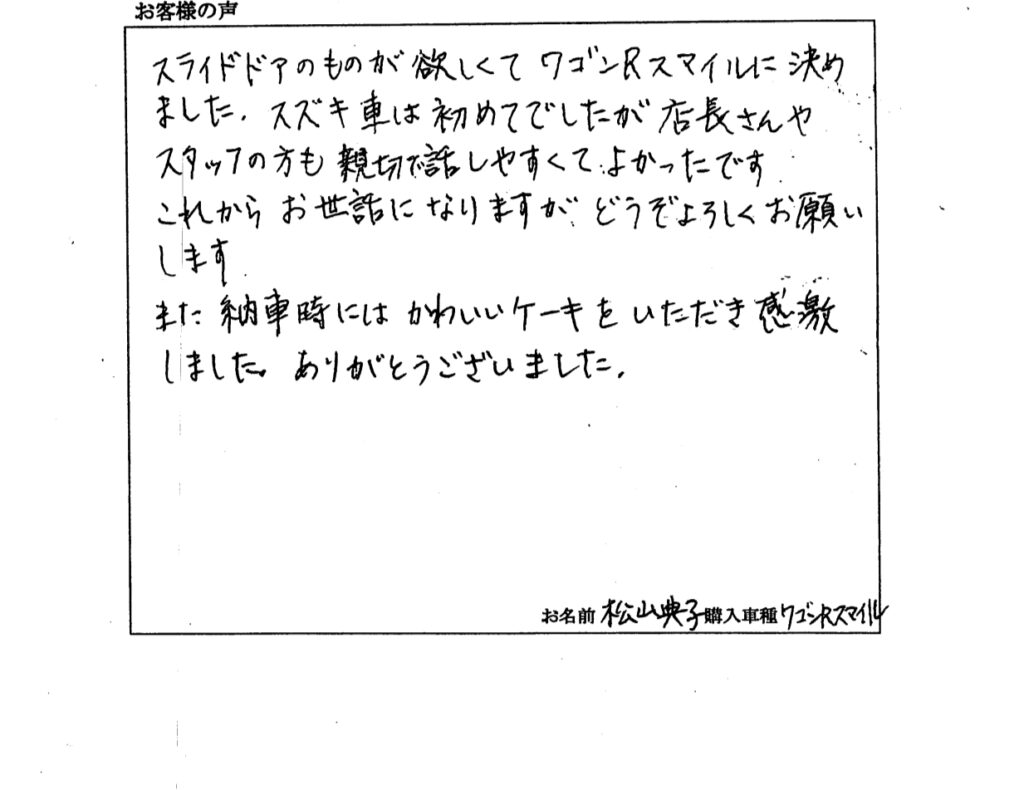 お客様の声
スライドドアのものが欲しくてワゴンRスマイルに決め
ました。スズキ車は初めてでしたが店長さんや
スタッフの方も親切で話しやすくてよかったです
これからお世話になりますがどうぞよろしくお願い
します
また納車時にはかわいいケーキをいただき感激
しました。ありがとうございました。
お名前 松山典子 購入車種 ワゴンRスマイル